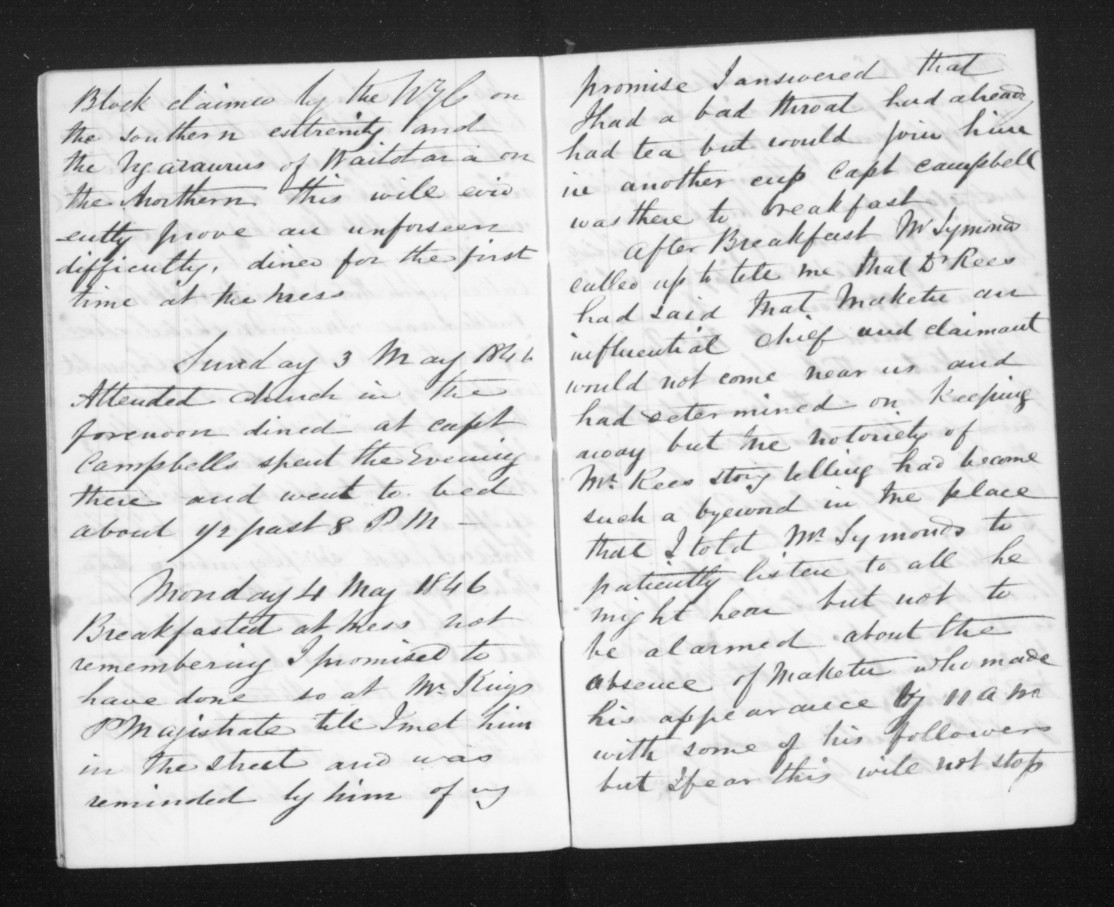 Block claimed by the NZC on
the southern extremity and
the Ngaraurus of Waitotara on
the Northern this will evid
-ently prove an unforseen
difficulty. dined for the first
time at the mess
Sunday 3 May 1846
Attended Church in the
forenoon dined at capt
Campbells spent the Evening
there and went to bed
about 1/2 past 8 PM -
Monday 4 May 1846
Breakfasted at Mess not
remembering I promised to
have done so at Mr Kings
P Magistrate till I met him
in the street and was
reminded by him of my
promise I answered that
I had a bad throat had already
had tea but would join him
in another cup Capt Campbell
was there to breakfast
After Breakfast Mr Symonds
called up to tell me that Dr Rees
had said that Maketu an
influential chief and claimant
would not come near us and
had determined on keeping
away but the notoriety of
Mr Rees story telling had become
such a byeword in the place
that I told Mr Symonds to
patiently listen to all he
might hear but not to
be alarmed about the
absence of Maketu who made
his appearance by 11 am
with some of his followers
but I fear this will not stop